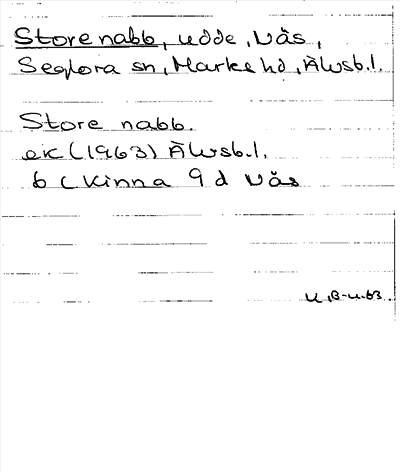 Store nabb, udde, Väs,
Seglora sn, Marks hd, Älvsb.l.
Store nabb.
ek (1963) Älvsb.l.
6 C Kinna 9 d Väs